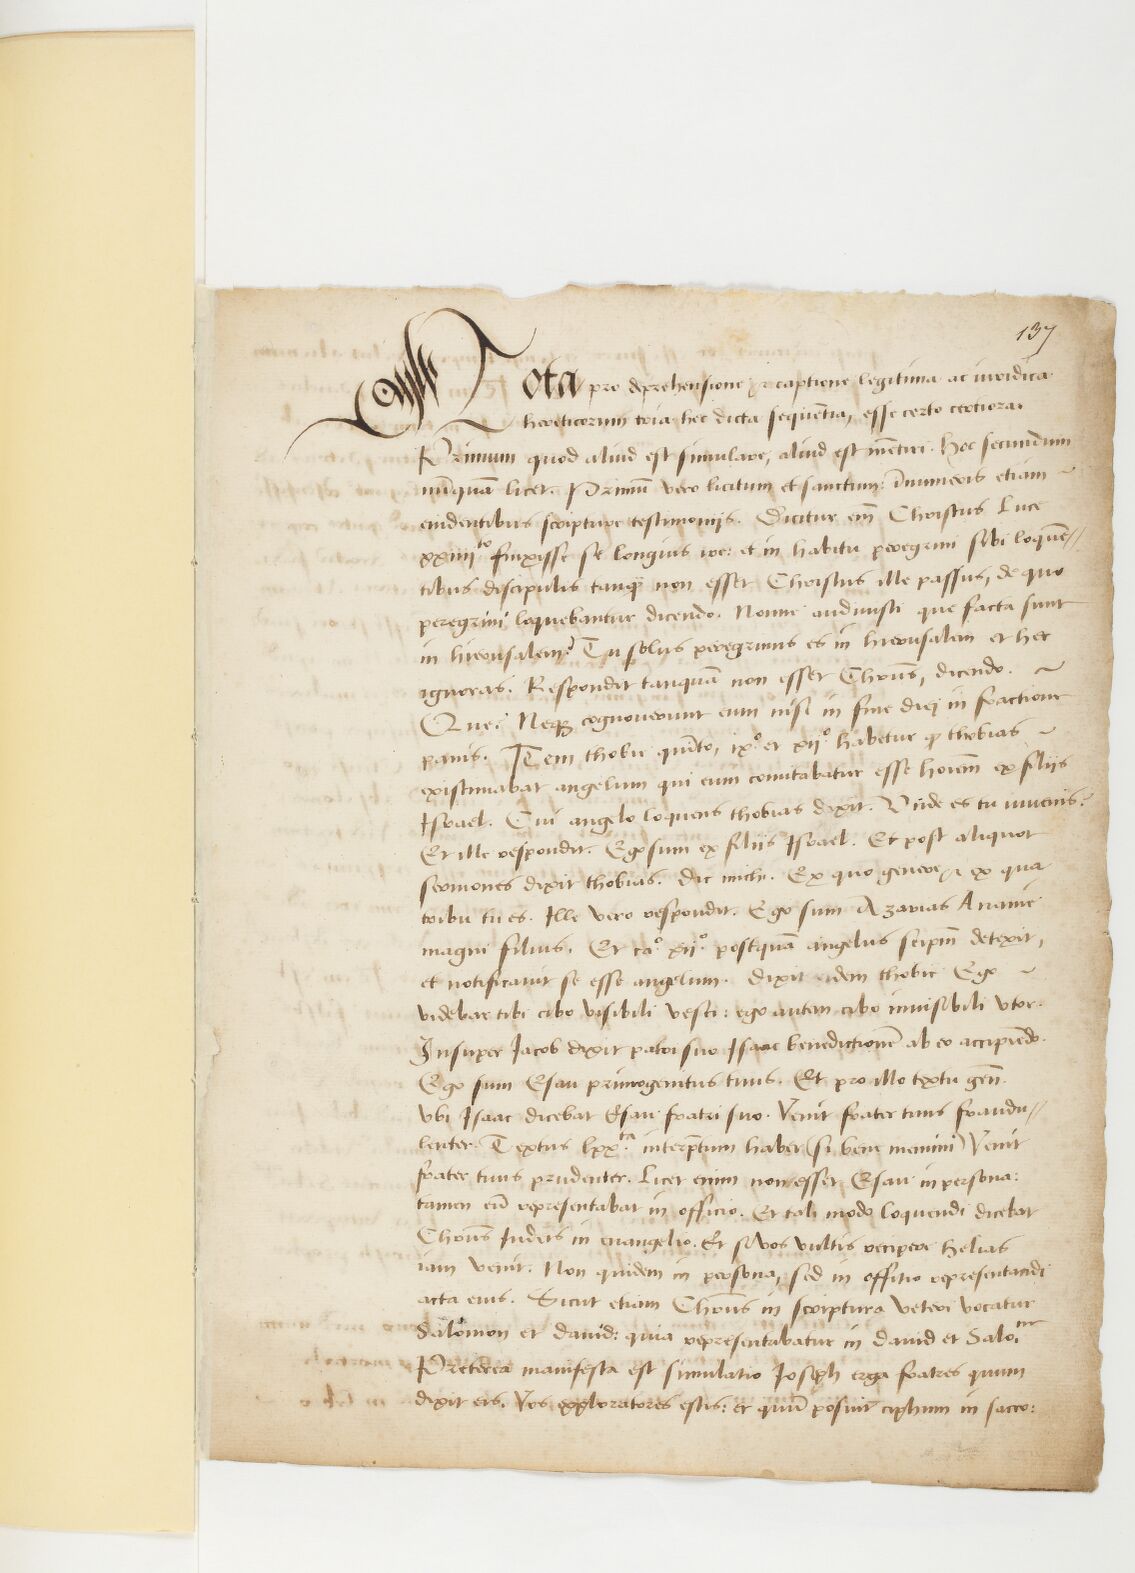 137
Nota pro deprehensione & captione legitima ac iuridica
hereticorum tria hec dicta sequẽtia, esse certo certiora.
Primum quod aliud est simulare, aliud est mẽtiri. Hoc secundum
nũquã licet. Primũ vero licitum et sanctum: ĩnumeris etiam
euidentibus scripture testimonijs. Dicitur em̃ Christus Luce
xxiiii.to finxisse se longius ire: et in habitu peregrini sibi loquẽ//
tibus discipulis tanq̃ non esset Christus ille passus, de quo
peregrini loquebantur dicendo. Nonne audiuisti que facta sunt
in hierusalem? Tu solus peregrinus es in hierusalem et hec
ignoras. Respondit tanquã non esset Chrũs, dicendo.
Que? Neqȝ cognouerunt eum nisi in fine diej in fractione
panis. Item thobie quĩto, ix.o et xii.o habetur ꝙ thobias
existimabat angelum qui eum comitabatur esse hoĩem ex filijs
Israel. Cui angelo loquens thobias dixit. Vñde es tu iuuenis?
Et ille respondit. Ego sum ex filiis Israel. Et post aliquot
sermones dixit thobias. Dic michi. Ex quo genere & ex qua
tribu tu es. Ille vero respondit. Ego sum Azarias Ananie
magni filius. Et ca.o xii.o postquã angelus seipm̃ detexit,
et notificauit se esse angelum. Dixit eidem thobie Ego
videbar tibi cibo visibili vesci: ego autem cibo inuisibili vtor.
Insuper Jacob dixit patri suo Isaac benedictionẽ ab eo accipiẽdo.
Ego sum Esau primogenitus tuus. Et pro illo textu gen̄.
vbi Isaac dicebat Esau fratri suo. Venit frater tuus fraudu//
lenter. Textus lxx.ta interp̃tum habet (si bene memini) Venit
frater tuus prudenter. Licet enim non esset Esau in persona:
tamen eũ representabat in officio. Et tali modo loquendi dicebat
Chrũs Iudeis in euangelio. Et si vos vultis recipere helias
iam venit. Non quidem in persona, sed in offitio representandi
acta eius. Sicut etiam Chrũs in scriptura veteri vocatur
Salomon et dauid: quia representabatur in dauid et Salo.ne
Preterea manifesta est simulatio Joseph erga fratres quum
dixit eis. Vos exploratores estis: et quũ posuit ciphum in sacco: